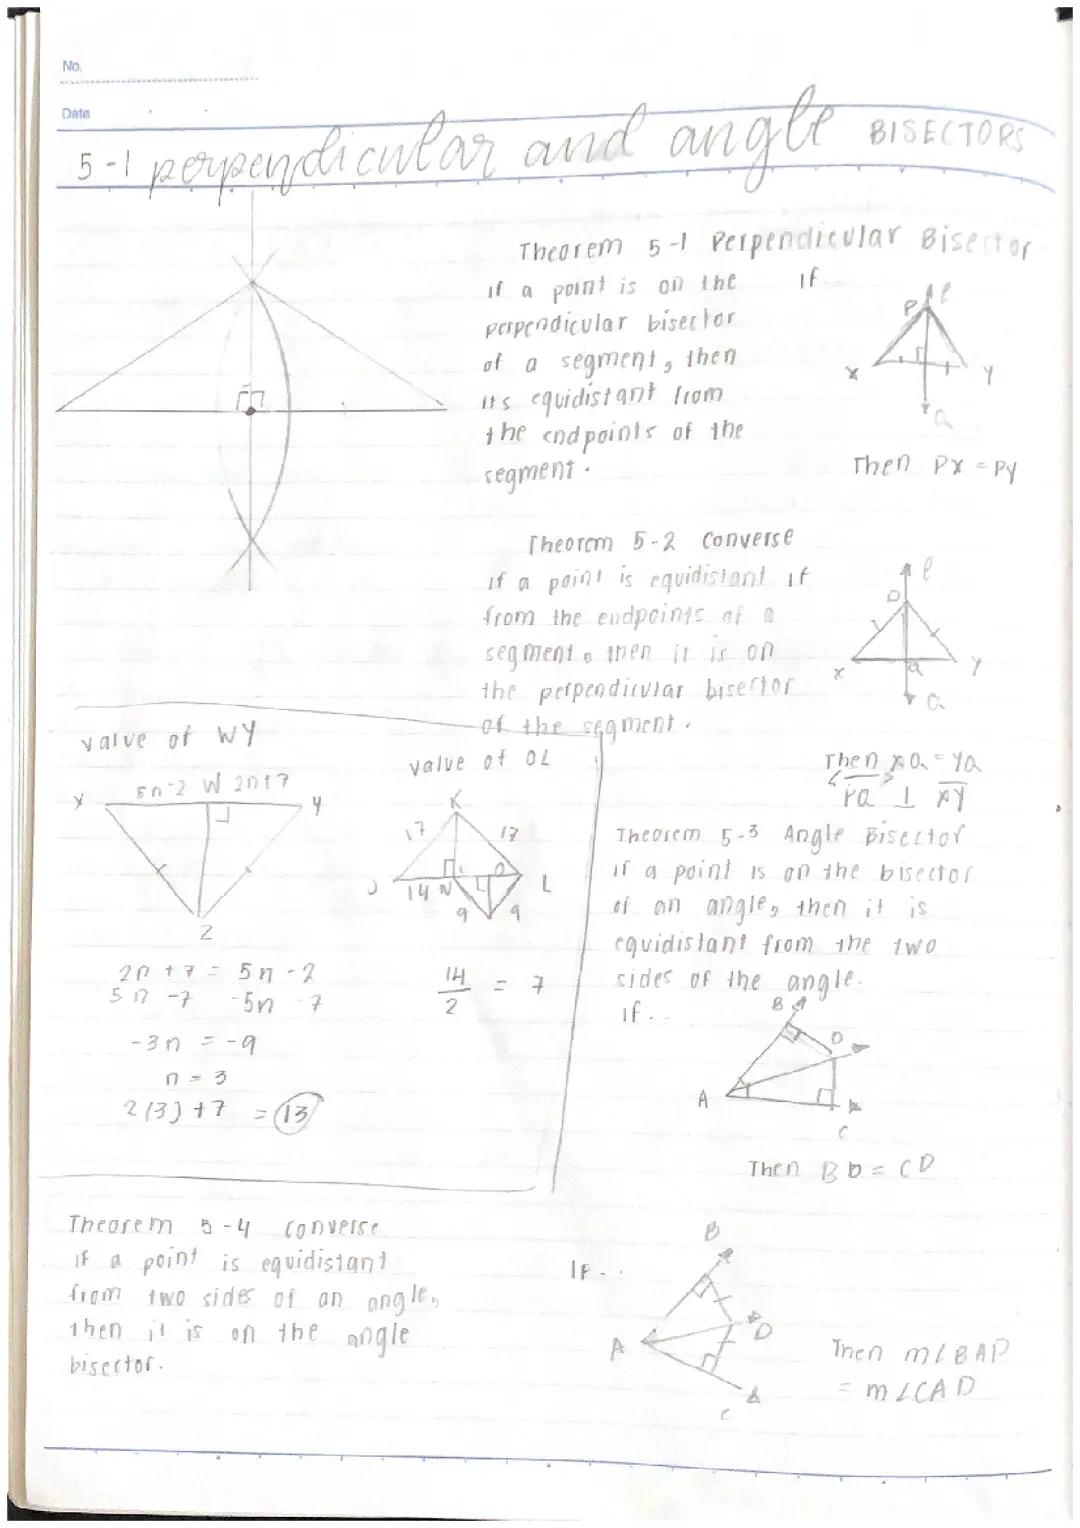 No.
Date
5-1 perpendicular and angle BISECTORS
Theorem 5-1 Perpendicular Bisector
if a point is on the
perpendicular bisector
of a segment, then
its equidistant from
the endpoints of the
segment.
If..
P l
X Y
Q
Then PX = PY
Theorem 5-2 Converse
if a point is equidistant
from the endpoints of a
segment, then it is on
the perpendicular bisector
of the segment.
if
l
P
X Q Y
Q
Then XQ = YQ
PQ ⊥ XY
value of WY
5n-2 W 2n+7
X Y
Z
2n + 7 = 5n - 2
5n -7 -5n -7
-3n = -9
n = 3
2(3) + 7 = 13
value of OL
K
17 17
J 14 N O L
9 9
14/2 = 7
Theorem 5-3 Angle Bisector
if a point is on the bisector
of an angle, then it is
equidistant from the two
sides of the angle.
if..
B
D
A
C
Then BD = CD
Theorem 5-4 Converse
if a point is equidistant
from two sides of an angle,
then it is on the angle
bisector.
IF..
B
D
A
C
Then m∠BAD
= m∠CAD